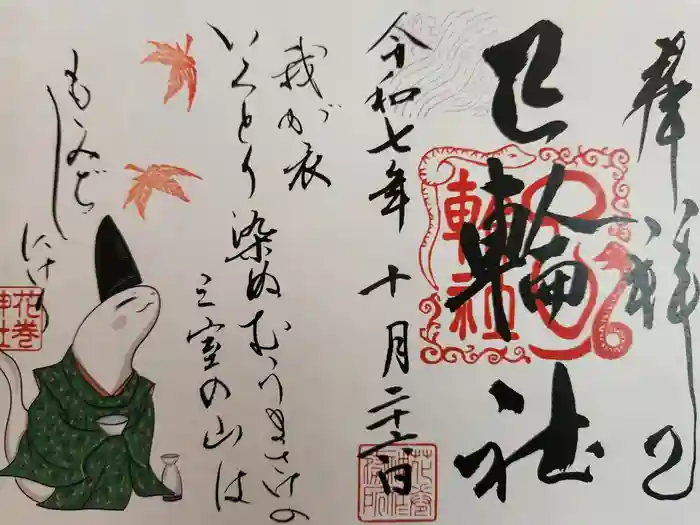 奉拝
巳輪社
令和七年 十月二十六日
我が衣
いろとり染めむうまさけの
三室の山は
もみぢし
にけり
花巻
神社